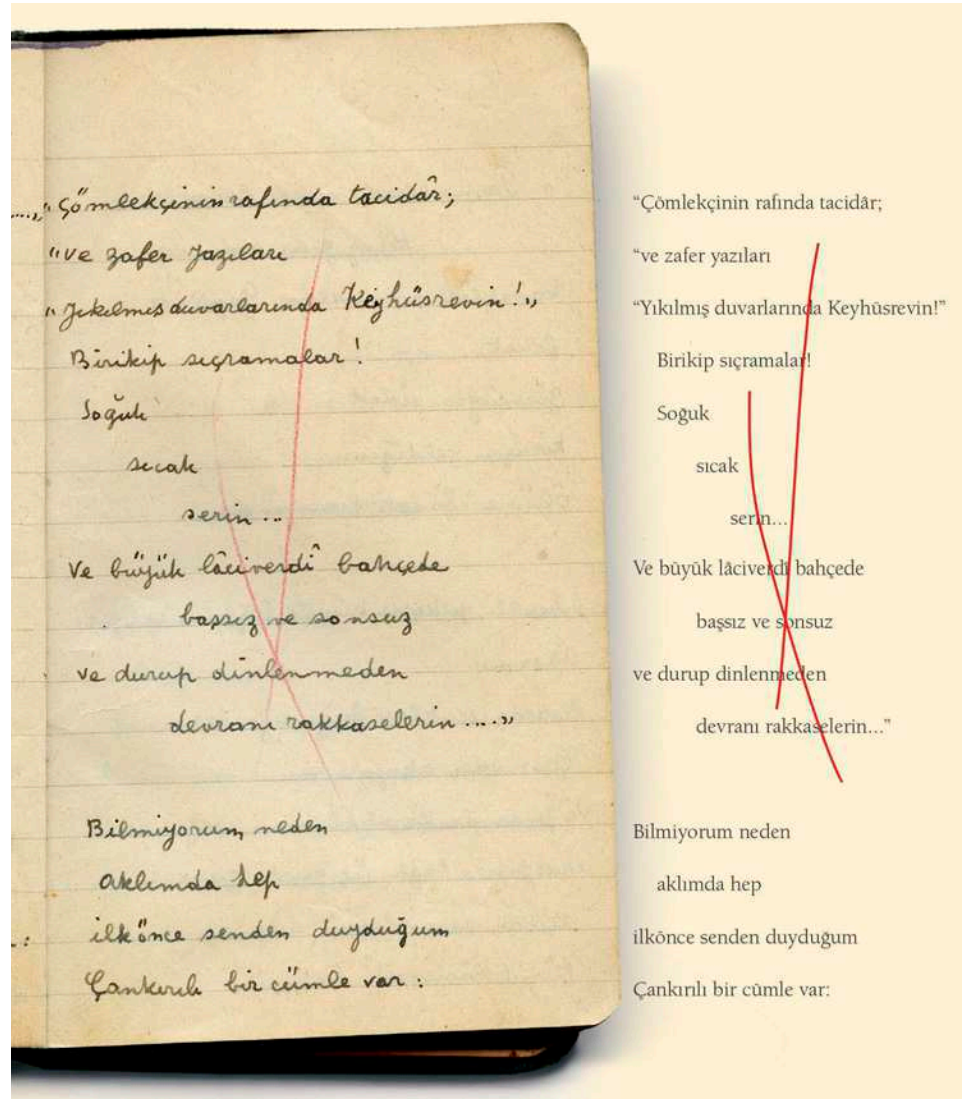 ....„ Çömlekçinin rafında tacidâr;
"ve zafer yazıları
"Yıkılmış duvarlarında Keyhüsrevin!"
Birikip sıçramalar!
Soğuk
sıcak
serin...
Ve büyük lâciverdî bahçede
başsız ve sonsuz
ve durup dinlenmeden
devranı rakkaselerin....."
Bilmiyorum neden
aklımda hep
ilkönce senden duyduğum
Çankırılı bir cümle var:
:
"Çömlekçinin rafında tacidâr;
"ve zafer yazıları
"Yıkılmış duvarlarında Keyhüsrevin!"
Birikip sıçramalar!
Soğuk
sıcak
serin...
Ve büyük lâciverdî bahçede
başsız ve sonsuz
ve durup dinlenmeden
devranı rakkaselerin..."
Bilmiyorum neden
aklımda hep
ilkönce senden duyduğum
Çankırılı bir cümle var: